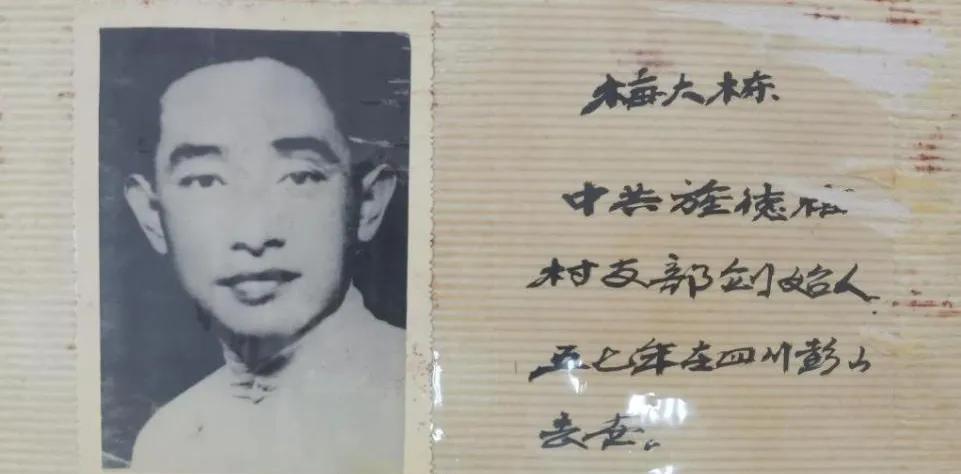 梅大栋
中共旌德梅
村支部创始人
五七年在四川彭山
去世。